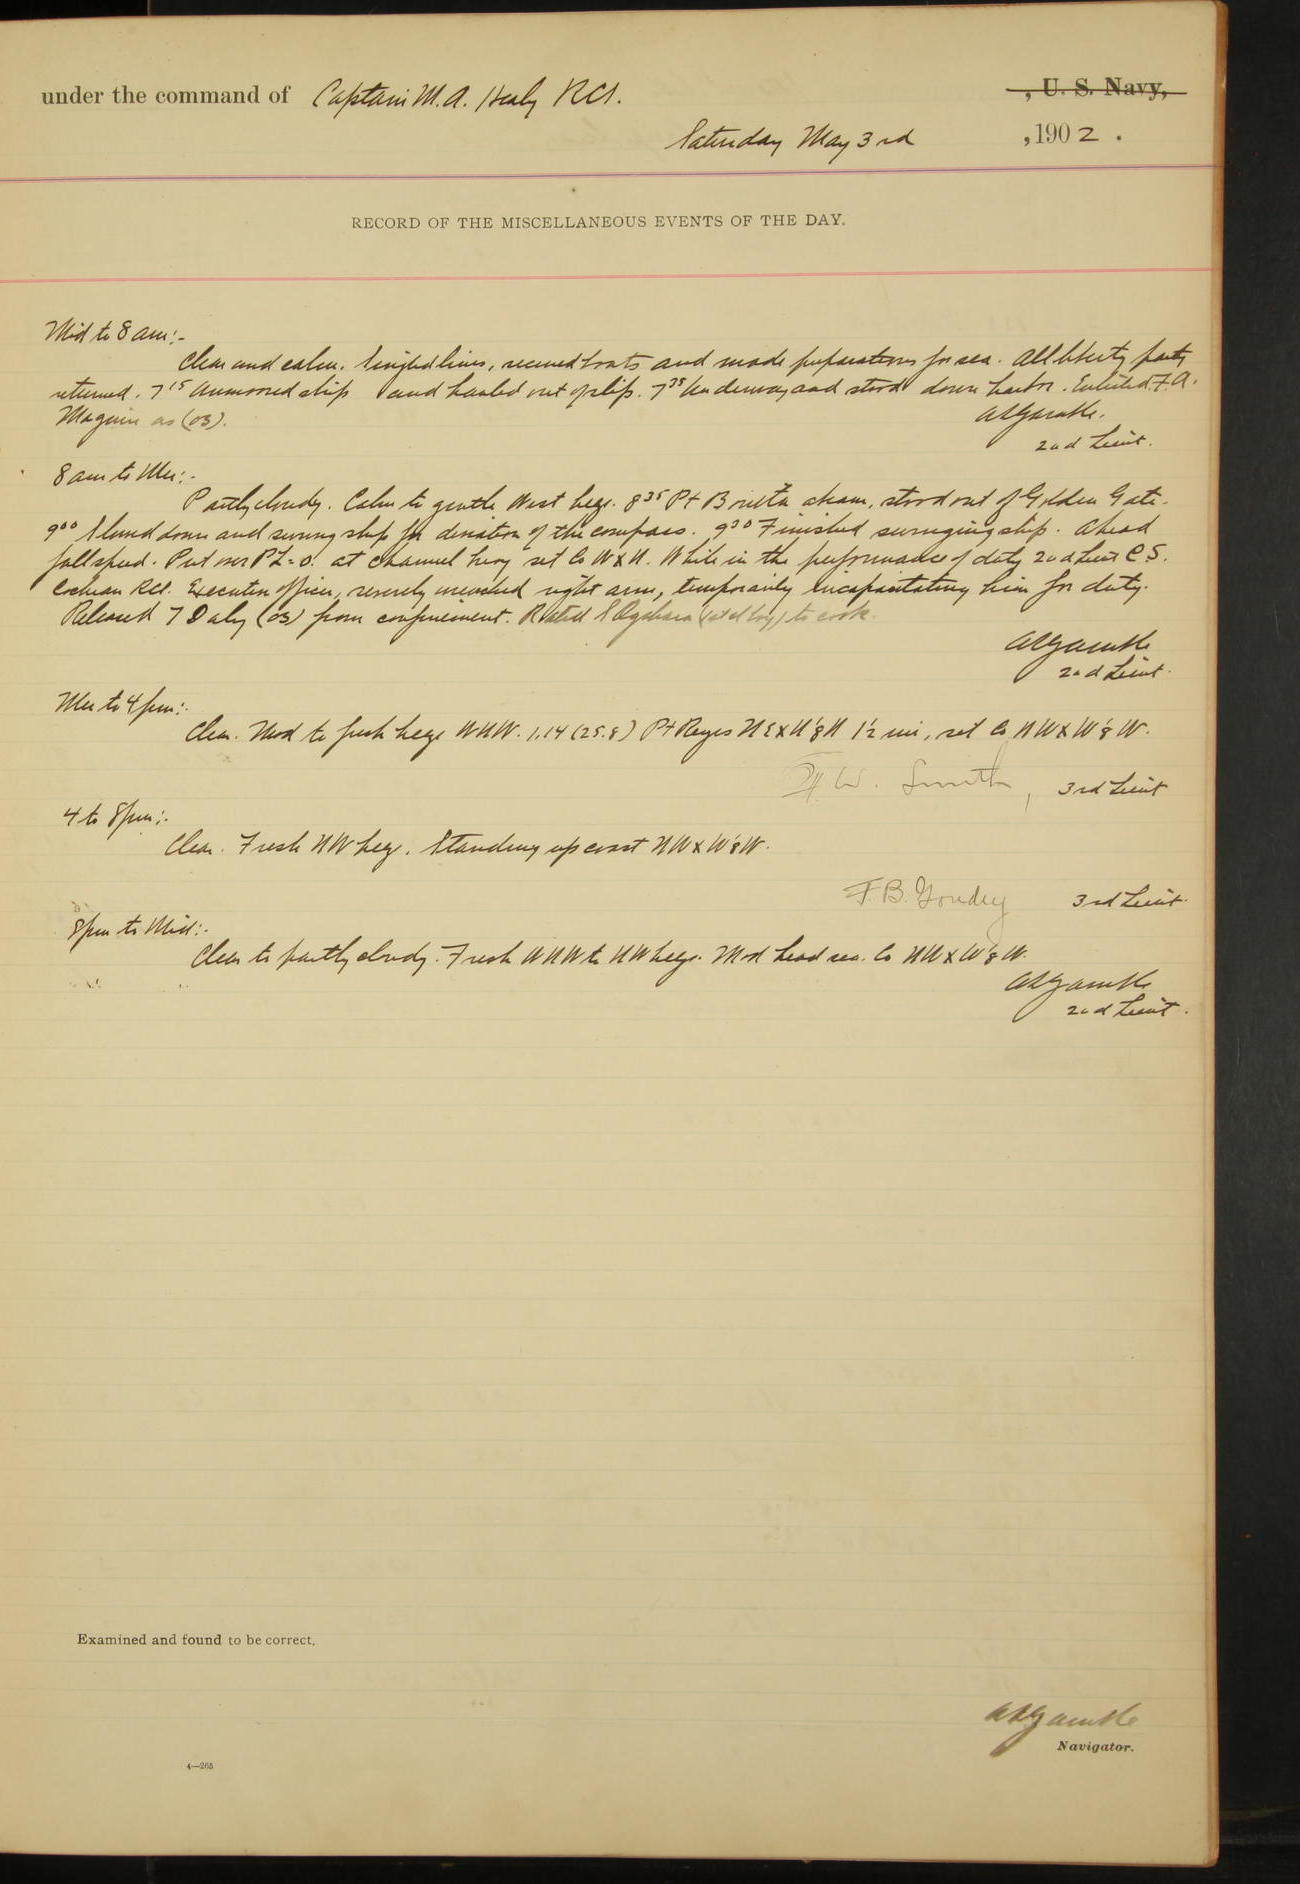 under the command of Captain M. A. Healy RCS. , U. S. Navy,
Saturday May 3rd , 1902 .
RECORD OF THE MISCELLANEOUS EVENTS OF THE DAY.
Mid to 8 am:-
Clear and calm. Singled lines, secured boats and made preparations for sea. All liberty party
returned. 7 15 Unmoored ship and hauled out of slip. 7 35 Underway and stood down harbor. Enlisted F. A.
Maguire as (OS).
2nd Lieut.
8 am to Mer:-
Partly cloudy. Calm to gentle West brgs. 8 35 Pt Bonita abeam, stood out of Golden Gate.
9 00 Slowed down and swung ship for deviation of the compass. 9 30 Finished swinging ship. Ahead
full speed. Put over PL=0. at channel buoy set Co WXN. While in the performance of duty 2nd Lieut C. S.
Cochran RCS. Executive officer, severely wrenched right arm, temporarily incapacitating him for duty.
Released 7 Daly (OS) from confinement. Rated S Ogahara to cook.
2nd Lieut.
Mer to 4 pm:-
Clear. Mod to fresh brgs WNW. 1.14 (25.8) Pt Reyes NEXN⅛N 1½ mi, set Co NWXW⅛W.
W. Smith, 3rd Lieut
4 to 8 pm:-
Clear. Fresh NW brgs. Standing up coast NWXW⅛W.
F. B. Goudey 3rd Lieut.
8 pm to Mid:-
Clear to partly cloudy. Fresh WNW to NW brgs. Mod head sea. Co NWXW⅛W.
2nd Lieut.
Examined and found to be correct.
Navigator.
4—265